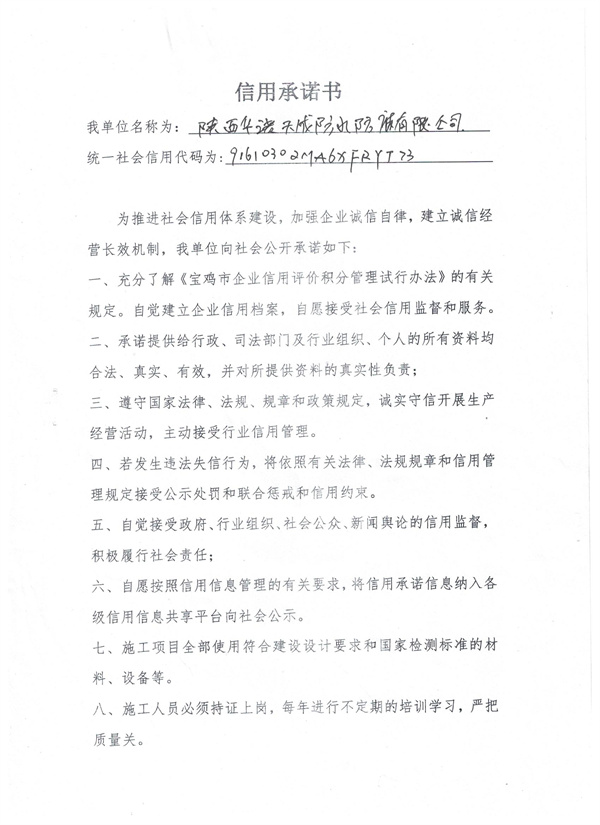 信用承诺书
我单位名称为：陕西华诺天成防水防腐有限公司
统一社会信用代码为：91610302MA6XFRYT73
为推进社会信用体系建设，加强企业诚信自律，建立诚信经
营长效机制，我单位向社会公开承诺如下：
一、充分了解《宝鸡市企业信用评价积分管理试行办法》的有关
规定。自觉建立企业信用档案，自愿接受社会信用监督和服务。
二、承诺提供给行政、司法部门及行业组织、个人的所有资料均
合法、真实、有效，并对所提供资料的真实性负责；
三、遵守国家法律、法规、规章和政策规定，诚实守信开展生产
经营活动，主动接受行业信用管理。
四、若发生违法失信行为，将依照有关法律、法规规章和信用管
理规定接受公示处罚和联合惩戒和信用约束。
五、自觉接受政府、行业组织、社会公众、新闻舆论的信用监督，
积极履行社会责任；
六、自愿按照信用信息管理的有关要求，将信用承诺信息纳入各
级信用信息共享平台向社会公示。
七、施工项目全部使用符合建设设计要求和国家检测标准的材
料、设备等。
八、施工人员必须持证上岗，每年进行不定期的培训学习，严把
质量关。